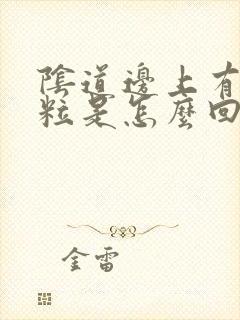 陰道邊上有
粒是怎麼回
金雷